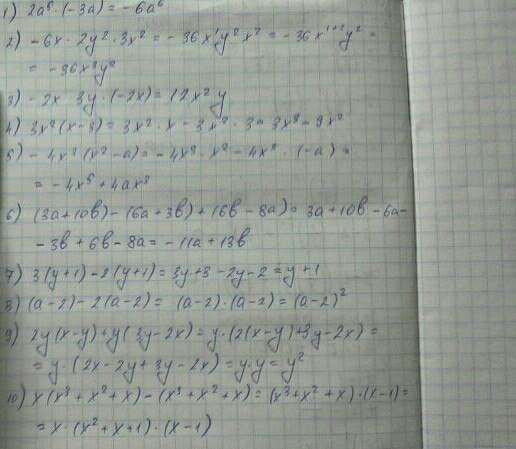 1) 2a⁵·(-3a) = -6a⁶
2) -6x · 2y² · 3x² = -36x¹y²x² = -36x¹⁺²y² =
= -36x³y²
3) -2x 3y·(-2x) = 12x²y
4) 3x²(x-3) = 3x²·x - 3x²·3 = 3x³ - 9x²
5) -4x³(x²-a) = -4x³·x² - 4x³·(-a) =
= -4x⁵+4ax³
6) (3a+10b)-(6a+3b)+(6b-8a) = 3a+10b-6a-
-3b+6b-8a = -11a+13b
7) 3(y+1)-2(y+1) = 3y+3-2y-2 = y+1
8) (a-2)-2(a-2) = (a-2)·(a-2) = (a-2)²
9) 2y(x-y)+y(3y-2x) = y·(2(x-y)+3y-2x) =
= y·(2x-2y+3y-2x) = y·y = y²
10) x(x³+x²+x)-(x³+x²+x) = (x³+x²+x)·(x-1) =
= x·(x²+x+1)·(x-1)